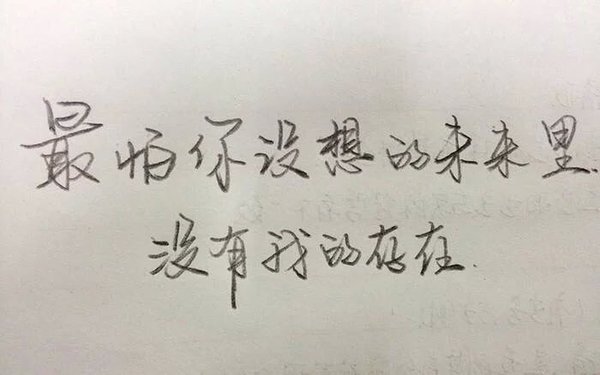 最怕你设想的未来里.
没有我的存在.